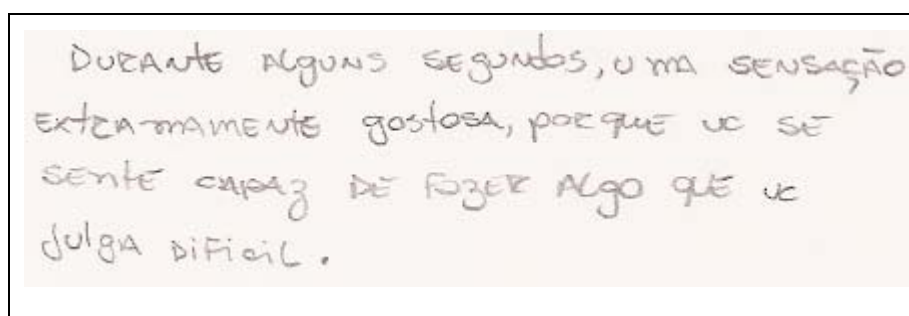 DURANTE ALGUNS SEGUNDOS, UMA SENSAÇÃO
EXTRAMAMENTE gostosa, porque vc SE
SENTE CAPAZ DE FAZER ALGO QUE vc
JULGA DIFICIL.